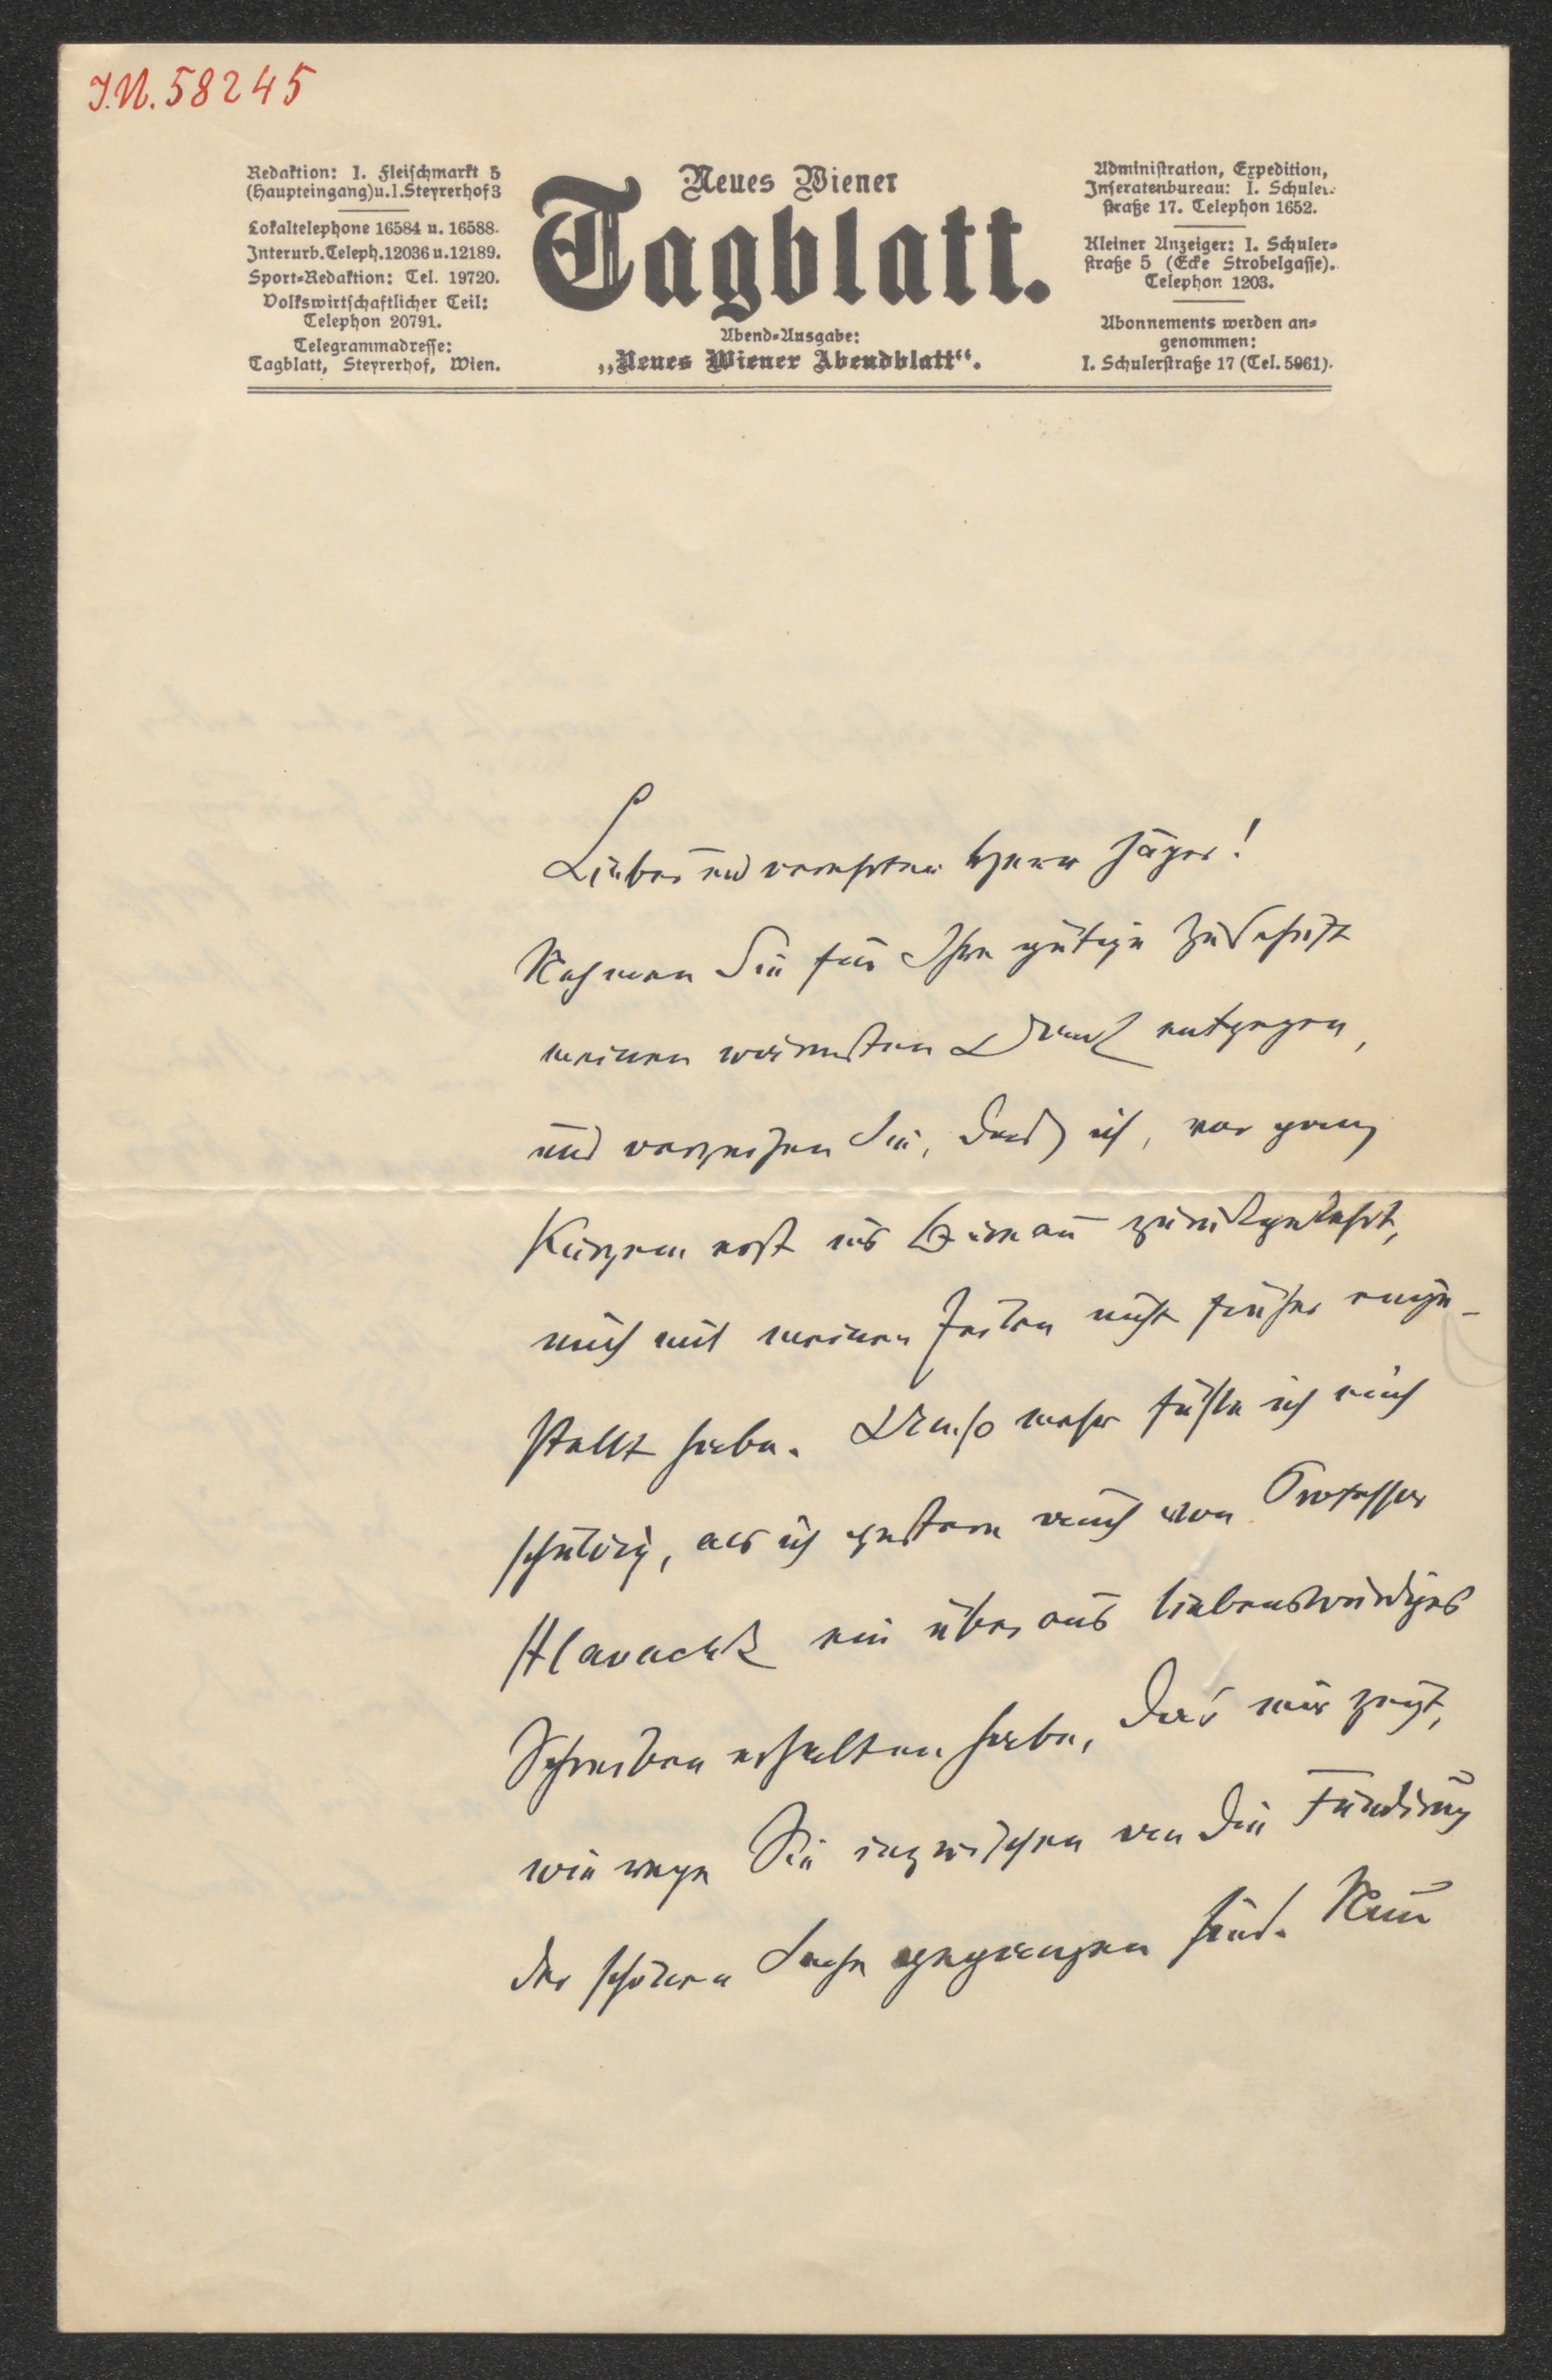 J.N. 58245
Redaktion: I. Fleischmarkt 5
(Haupteingang) u. I. Steyrerhof 3
Lokaltelephone 16584 u. 16588.
Interurb. Teleph. 12036 u. 12189.
Sport-Redaktion: Tel. 19720.
Volkswirtschaftlicher Teil:
Telephon 20791.
Telegrammadresse:
Tagblatt, Steyrerhof, Wien.
Neues Wiener
Tagblatt.
Abend-Ausgabe:
„Neues Wiener Abendblatt“.
Administration, Expedition,
Inseratenbureau: I. Schuler-
straße 17. Telephon 1652.
Kleiner Anzeiger: I. Schuler-
straße 5 (Ecke Strobelgasse).
Telephon 1203.
Abonnements werden an-
genommen:
I. Schulerstraße 17 (Tel. 5961).
Lieber und verehrter Herr Jäger!
Nehmen Sie für Ihre gütige Zuschrift
meinen wärmsten Dank entgegen,
und verzeihen Sie, daß ich, vor ganz
Kurzem erst ins Bureau zurückgekehrt,
mich mit meinen Zeilen nicht früher einge-
stellt habe. Umso mehr fühle ich mich
schuldig, als ich gestern auch von Professor
Hlavacek ein überaus liebenswürdiges
Schreiben erhalten habe, das mir zeigt,
wie rege Sie inzwischen an die Fundirung
der schönen Sache gegangen sind. Nun